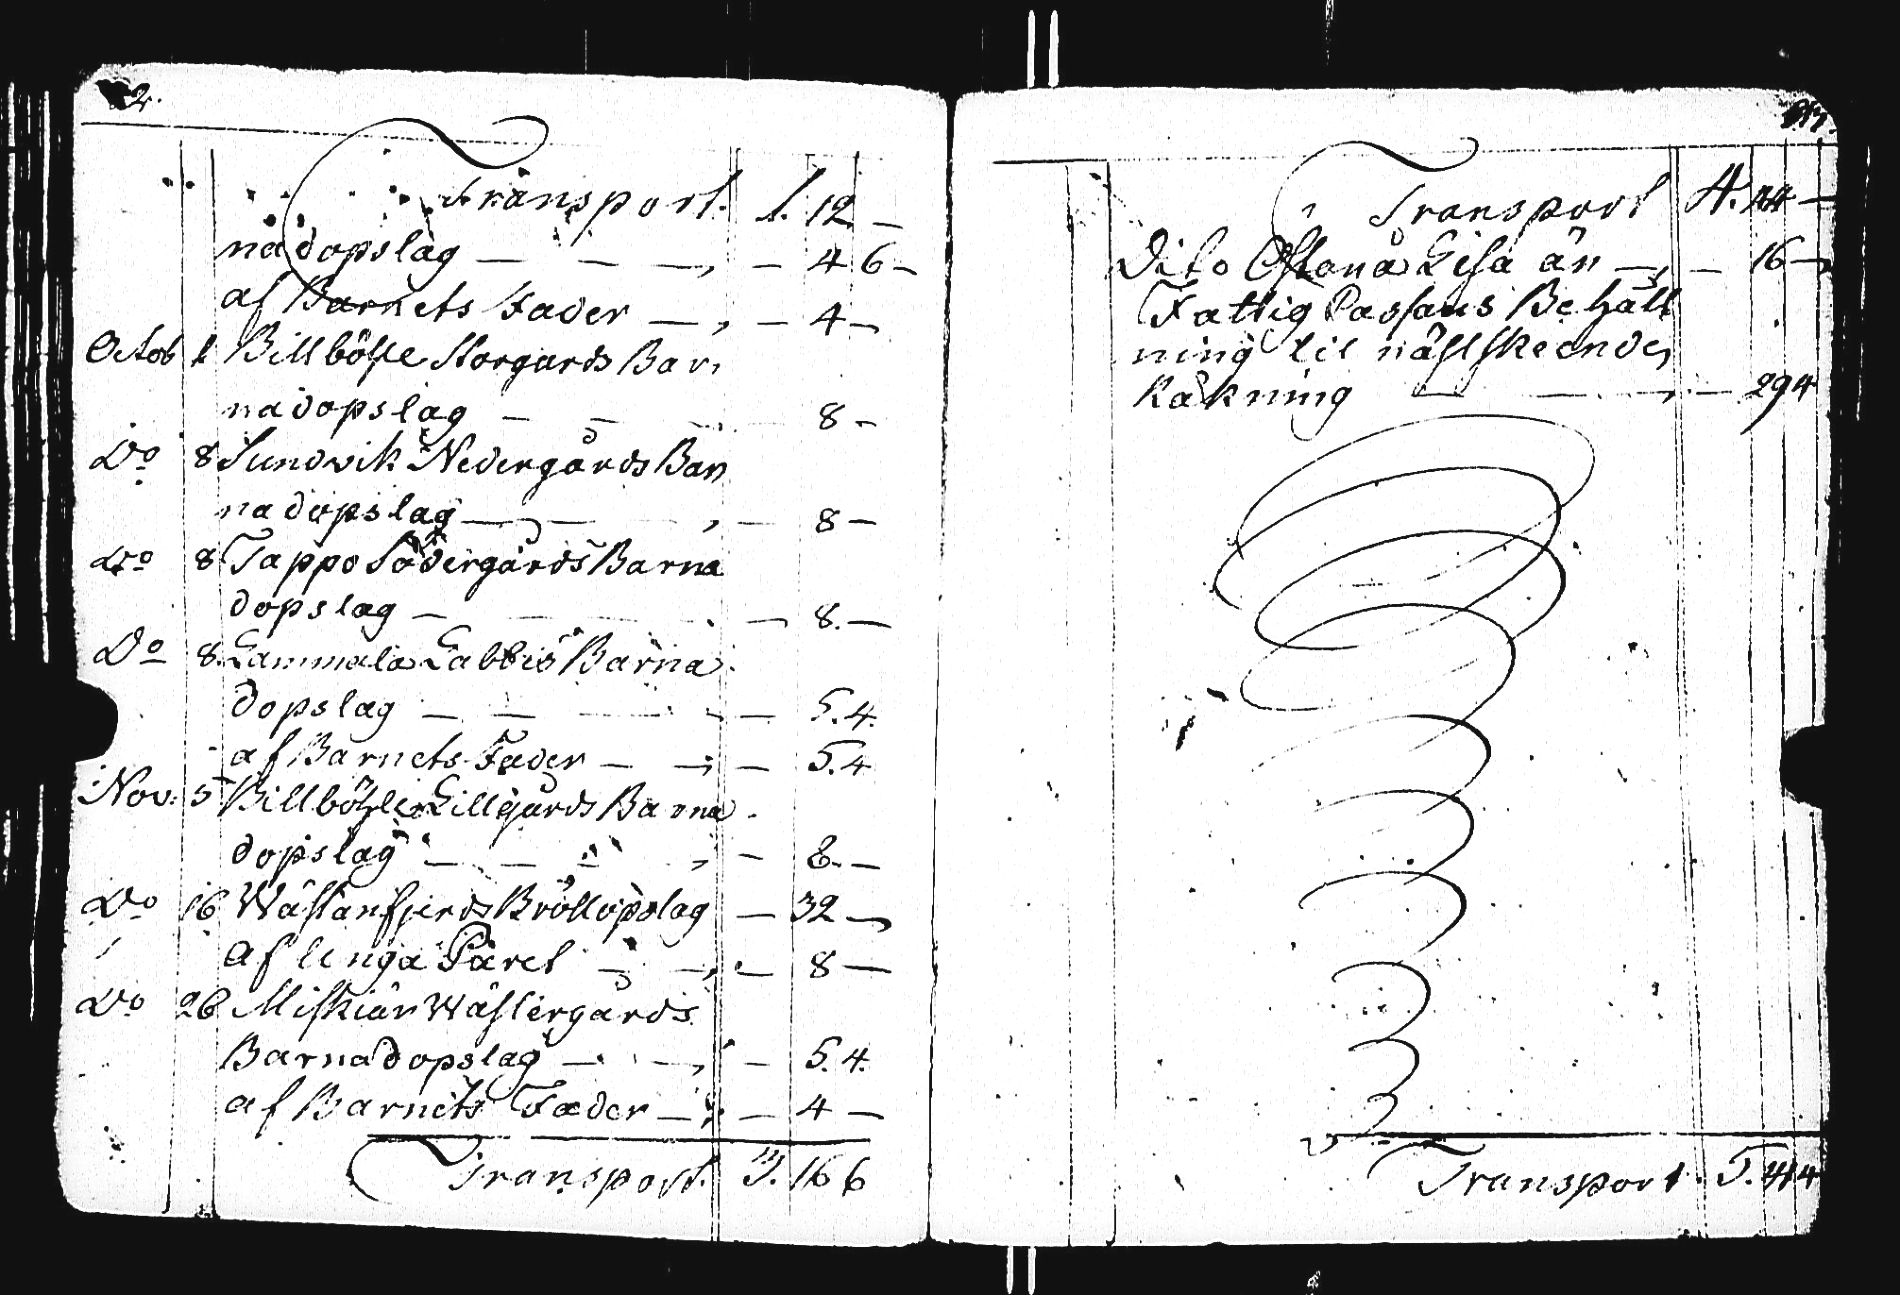 2.
Transport. 1. 12 —
nadopslag — — —, — 4 6 —
af Barnets Fader —, — 4 —,
Octob 1 Billböhle Storgårds Bar,
nadopslag — — 8 —
Do 8 Sundvik Nedergårds Bar
nadopslag — — , — 8 —
Do 8 Tappo Södergårds Barna
dopslag — — 8. —
Do 8. Gammala Labbis Barna
dopslag — — — 5. 4.
af Barnets Fader — —, — 5. 4
Nov: 5 Billböhle Lillgårds Barna
dopslag — — — , — 8. —
Do 16 Wästanfjerds Bröllopslag — 32 —,
af unga Paret — —, — 8 —
Do 26 Miskiär Wästergårds
Barnadopslag — —, — 5. 4.
af Barnets Fader —, — 4 —
Transport. 3. 16 6
Transport 4. 44 —
Dito Östanå Lisa än —, — 16 —,
Fattig Cassans Behåll
ning til nästskeende,
Räkning — —, — 29 4
Transport. 5. 41 4